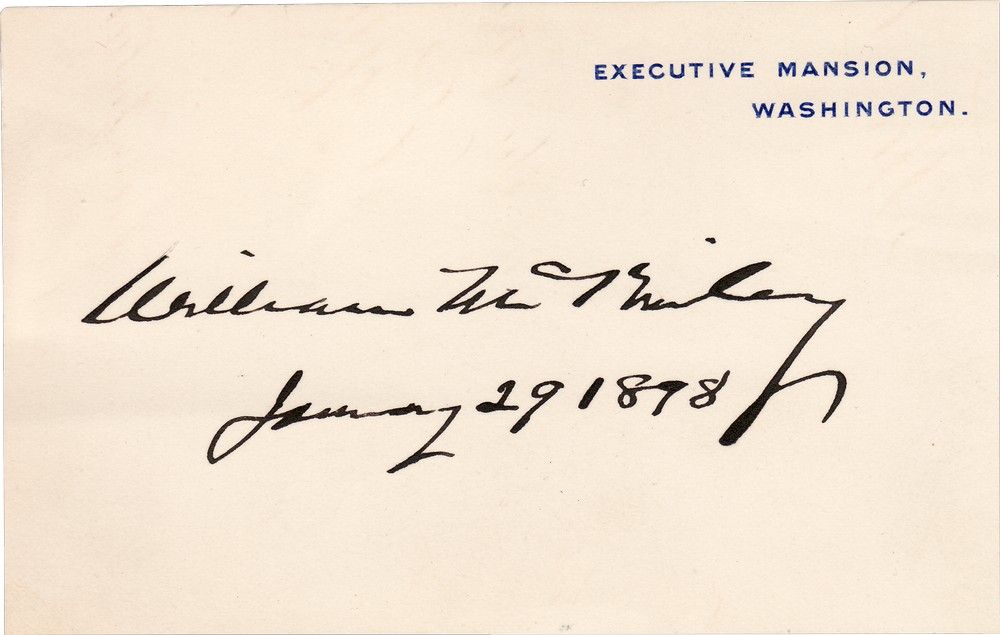 EXECUTIVE MANSION,
WASHINGTON.
William McKinley
January 29 1898